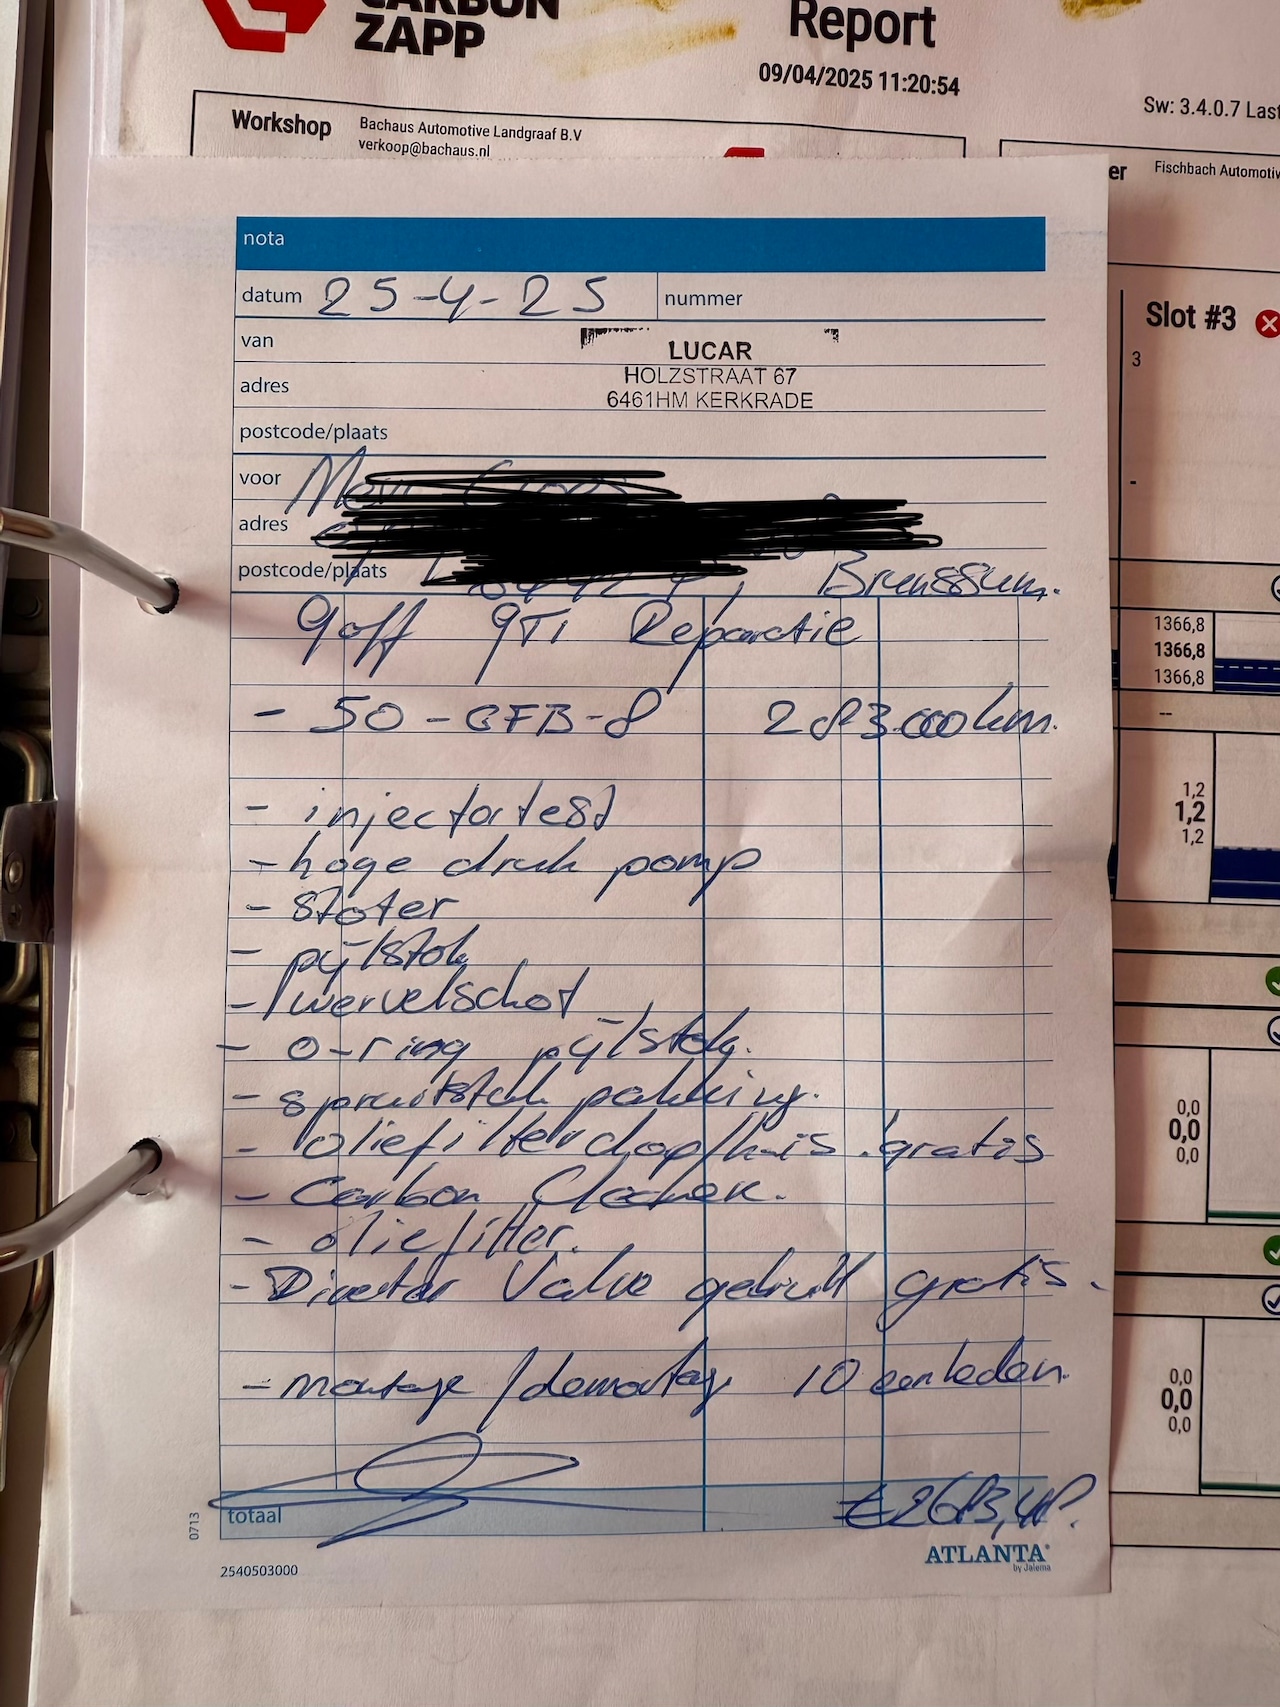 CARBON
ZAPP
Report
09/04/2025 11:20:54
Sw: 3.4.0.7 Last
Workshop
Bachaus Automotive Landgraaf B.V
verkoop@bachaus.nl
er
Fischbach Automotiv
nota
datum 25-4-25 nummer
van
LUCAR
adres
HOLZSTRAAT 67
6461HM KERKRADE
postcode/plaats
voor
adres
postcode/plaats Brunssum.
Golf GTI Reparatie
- 50-GFB-8 283.000km.
- injectortest
- hoge druk pomp
- stoter
- pijlstok
- wervelschot
- o-ring pijlstok.
- spruitstuk pakking.
- oliefilterdop/huis gratis
- Carbon Cleanen.
- oliefilter.
- Director Valve gebruikt gratis.
- montage/demontage 10 eenheden.
totaal €2683,48.
0713
2540503000
ATLANTA
by Jalema
Slot #3
3
-
1366,8
1366,8
1366,8
--
1,2
1,2
1,2
0,0
0,0
0,0
0,0
0,0
0,0